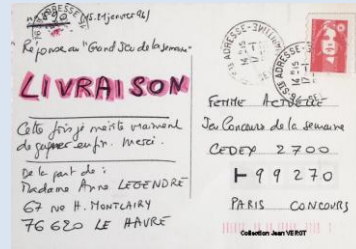 (15.21 janvier 94)
Réponse au "Grand Jeu de la semaine"
LIVRAISON
Cette fois je mérite vraiment
de gagner enfin. Merci.
De la part de :
Madame Anne LEGENDRE
67 rue H. MONTLAIRY
76620 LE HAVRE
FEMME ACTUELLE
Jeu Concours de la semaine
CEDEX 2700
99270
PARIS CONCOURS
Collection Jean VEROT